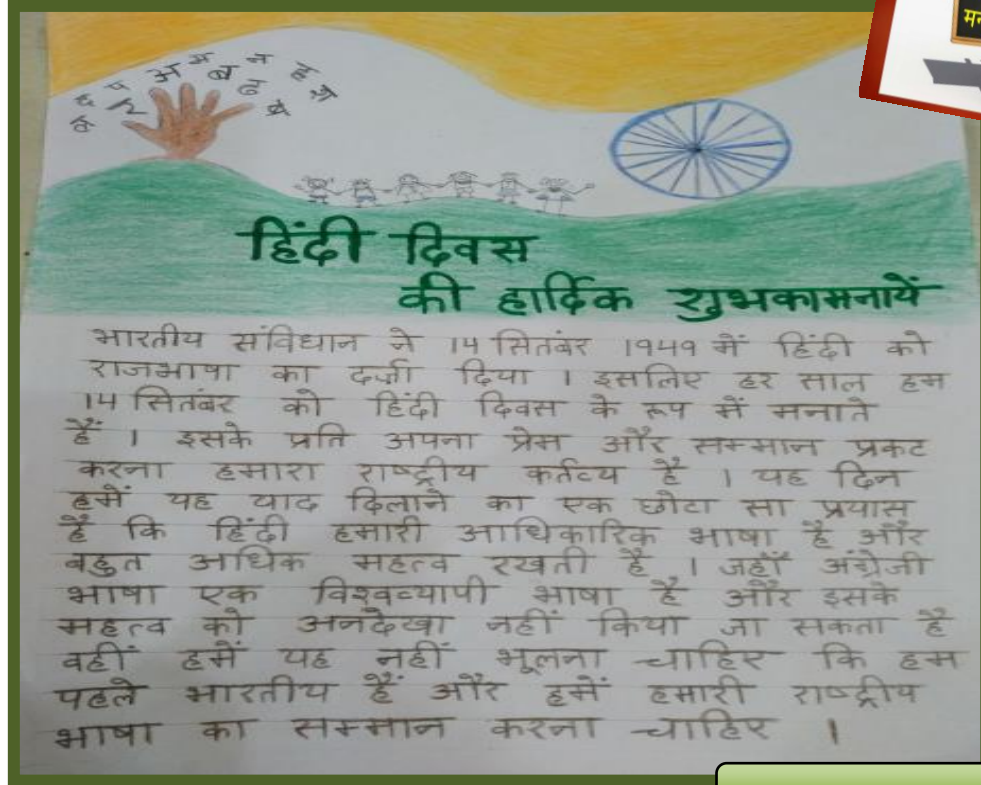 हिंदी दिवस
की हार्दिक शुभकामनायें
भारतीय संविधान ने 14 सितंबर 1949 में हिंदी को
राजभाषा का दर्जा दिया । इसलिए हर साल हम
14 सितंबर को हिंदी दिवस के रूप में मनाते
हैं । इसके प्रति अपना प्रेम और सम्मान प्रकट
करना हमारा राष्ट्रीय कर्तव्य है । यह दिन
हमें यह याद दिलाने का एक छोटा सा प्रयास
है कि हिंदी हमारी आधिकारिक भाषा है और
बहुत अधिक महत्व रखती है । जहाँ अंग्रेजी
भाषा एक विश्वव्यापी भाषा है और इसके
महत्व को अनदेखा नहीं किया जा सकता है
वहीं हमें यह नहीं भूलना चाहिए कि हम
पहले भारतीय हैं और हमें हमारी राष्ट्रीय
भाषा का सम्मान करना चाहिए ।